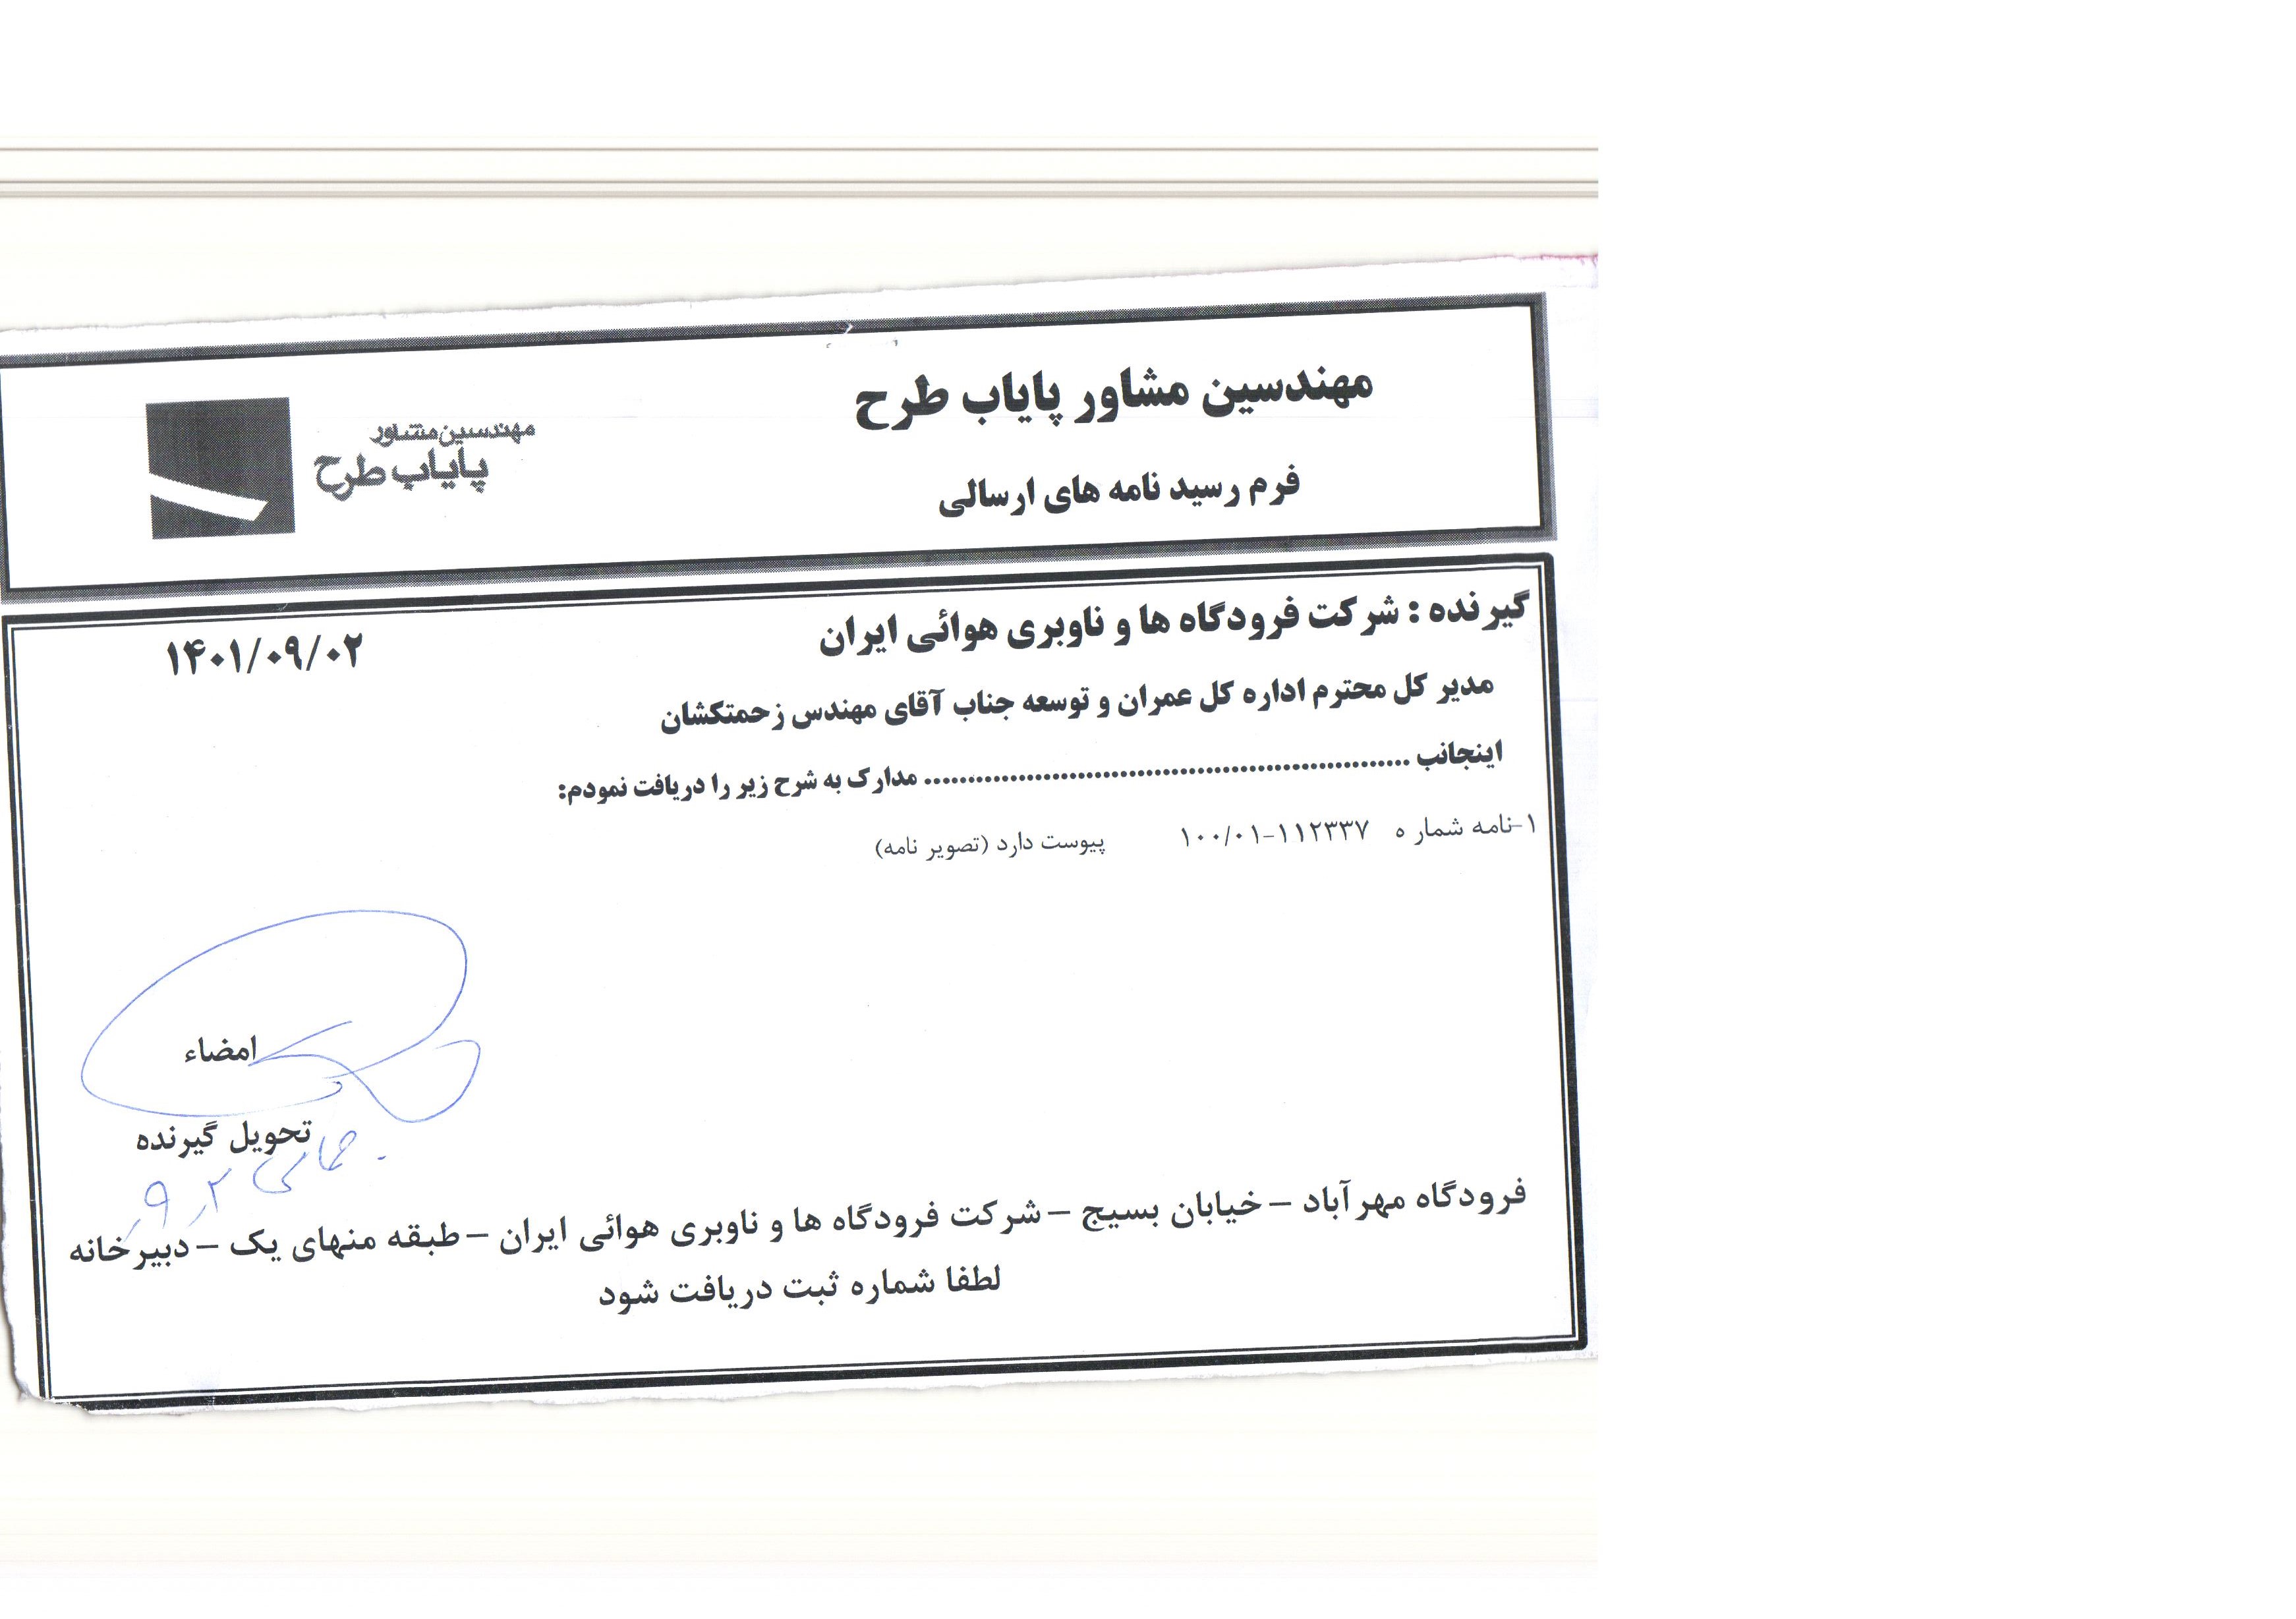 مهندسین مشاور پایاب طرح
فرم رسید نامه های ارسالی
مهندسین مشاور
پایاب طرح
گیرنده : شرکت فرودگاه ها و ناوبری هوائی ایران
۱۴۰۱/۰۹/۰۲
مدیر کل محترم اداره کل عمران و توسعه جناب آقای مهندس زحمتکشان
اینجانب ............................................................ مدارک به شرح زیر را دریافت نمودم:
۱-نامه شمار ه ۱۰۰/۰۱-۱۱۲۳۳۷ پیوست دارد (تصویر نامه)
امضاء
تحویل گیرنده
فرودگاه مهرآباد – خیابان بسیج – شرکت فرودگاه ها و ناوبری هوائی ایران – طبقه منهای یک – دبیرخانه
لطفا شماره ثبت دریافت شود